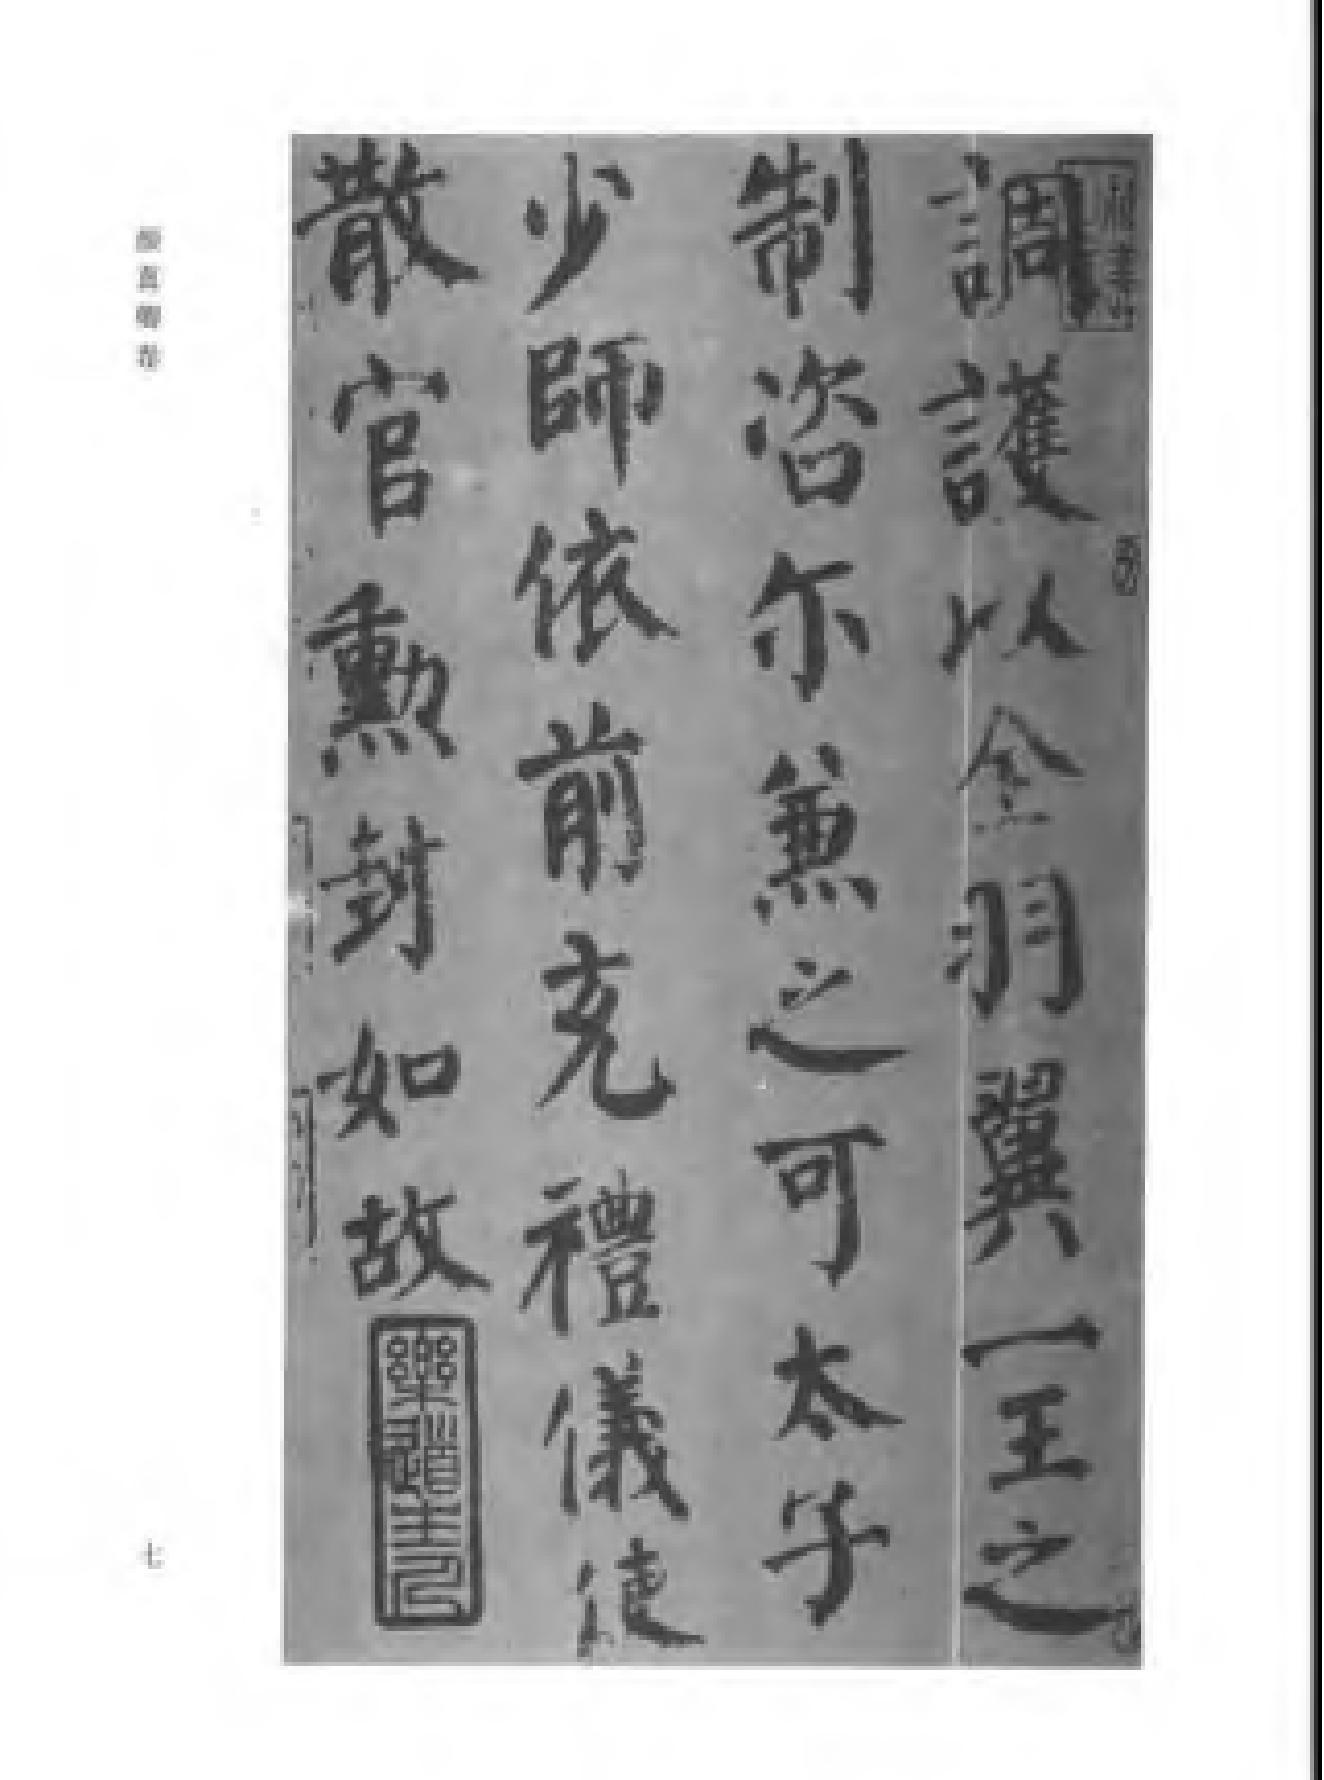 調護以全羽翼一王之
制咨尔兼之可太子
少師依前充禮儀使
散官勳封如故
顏真卿卷
七